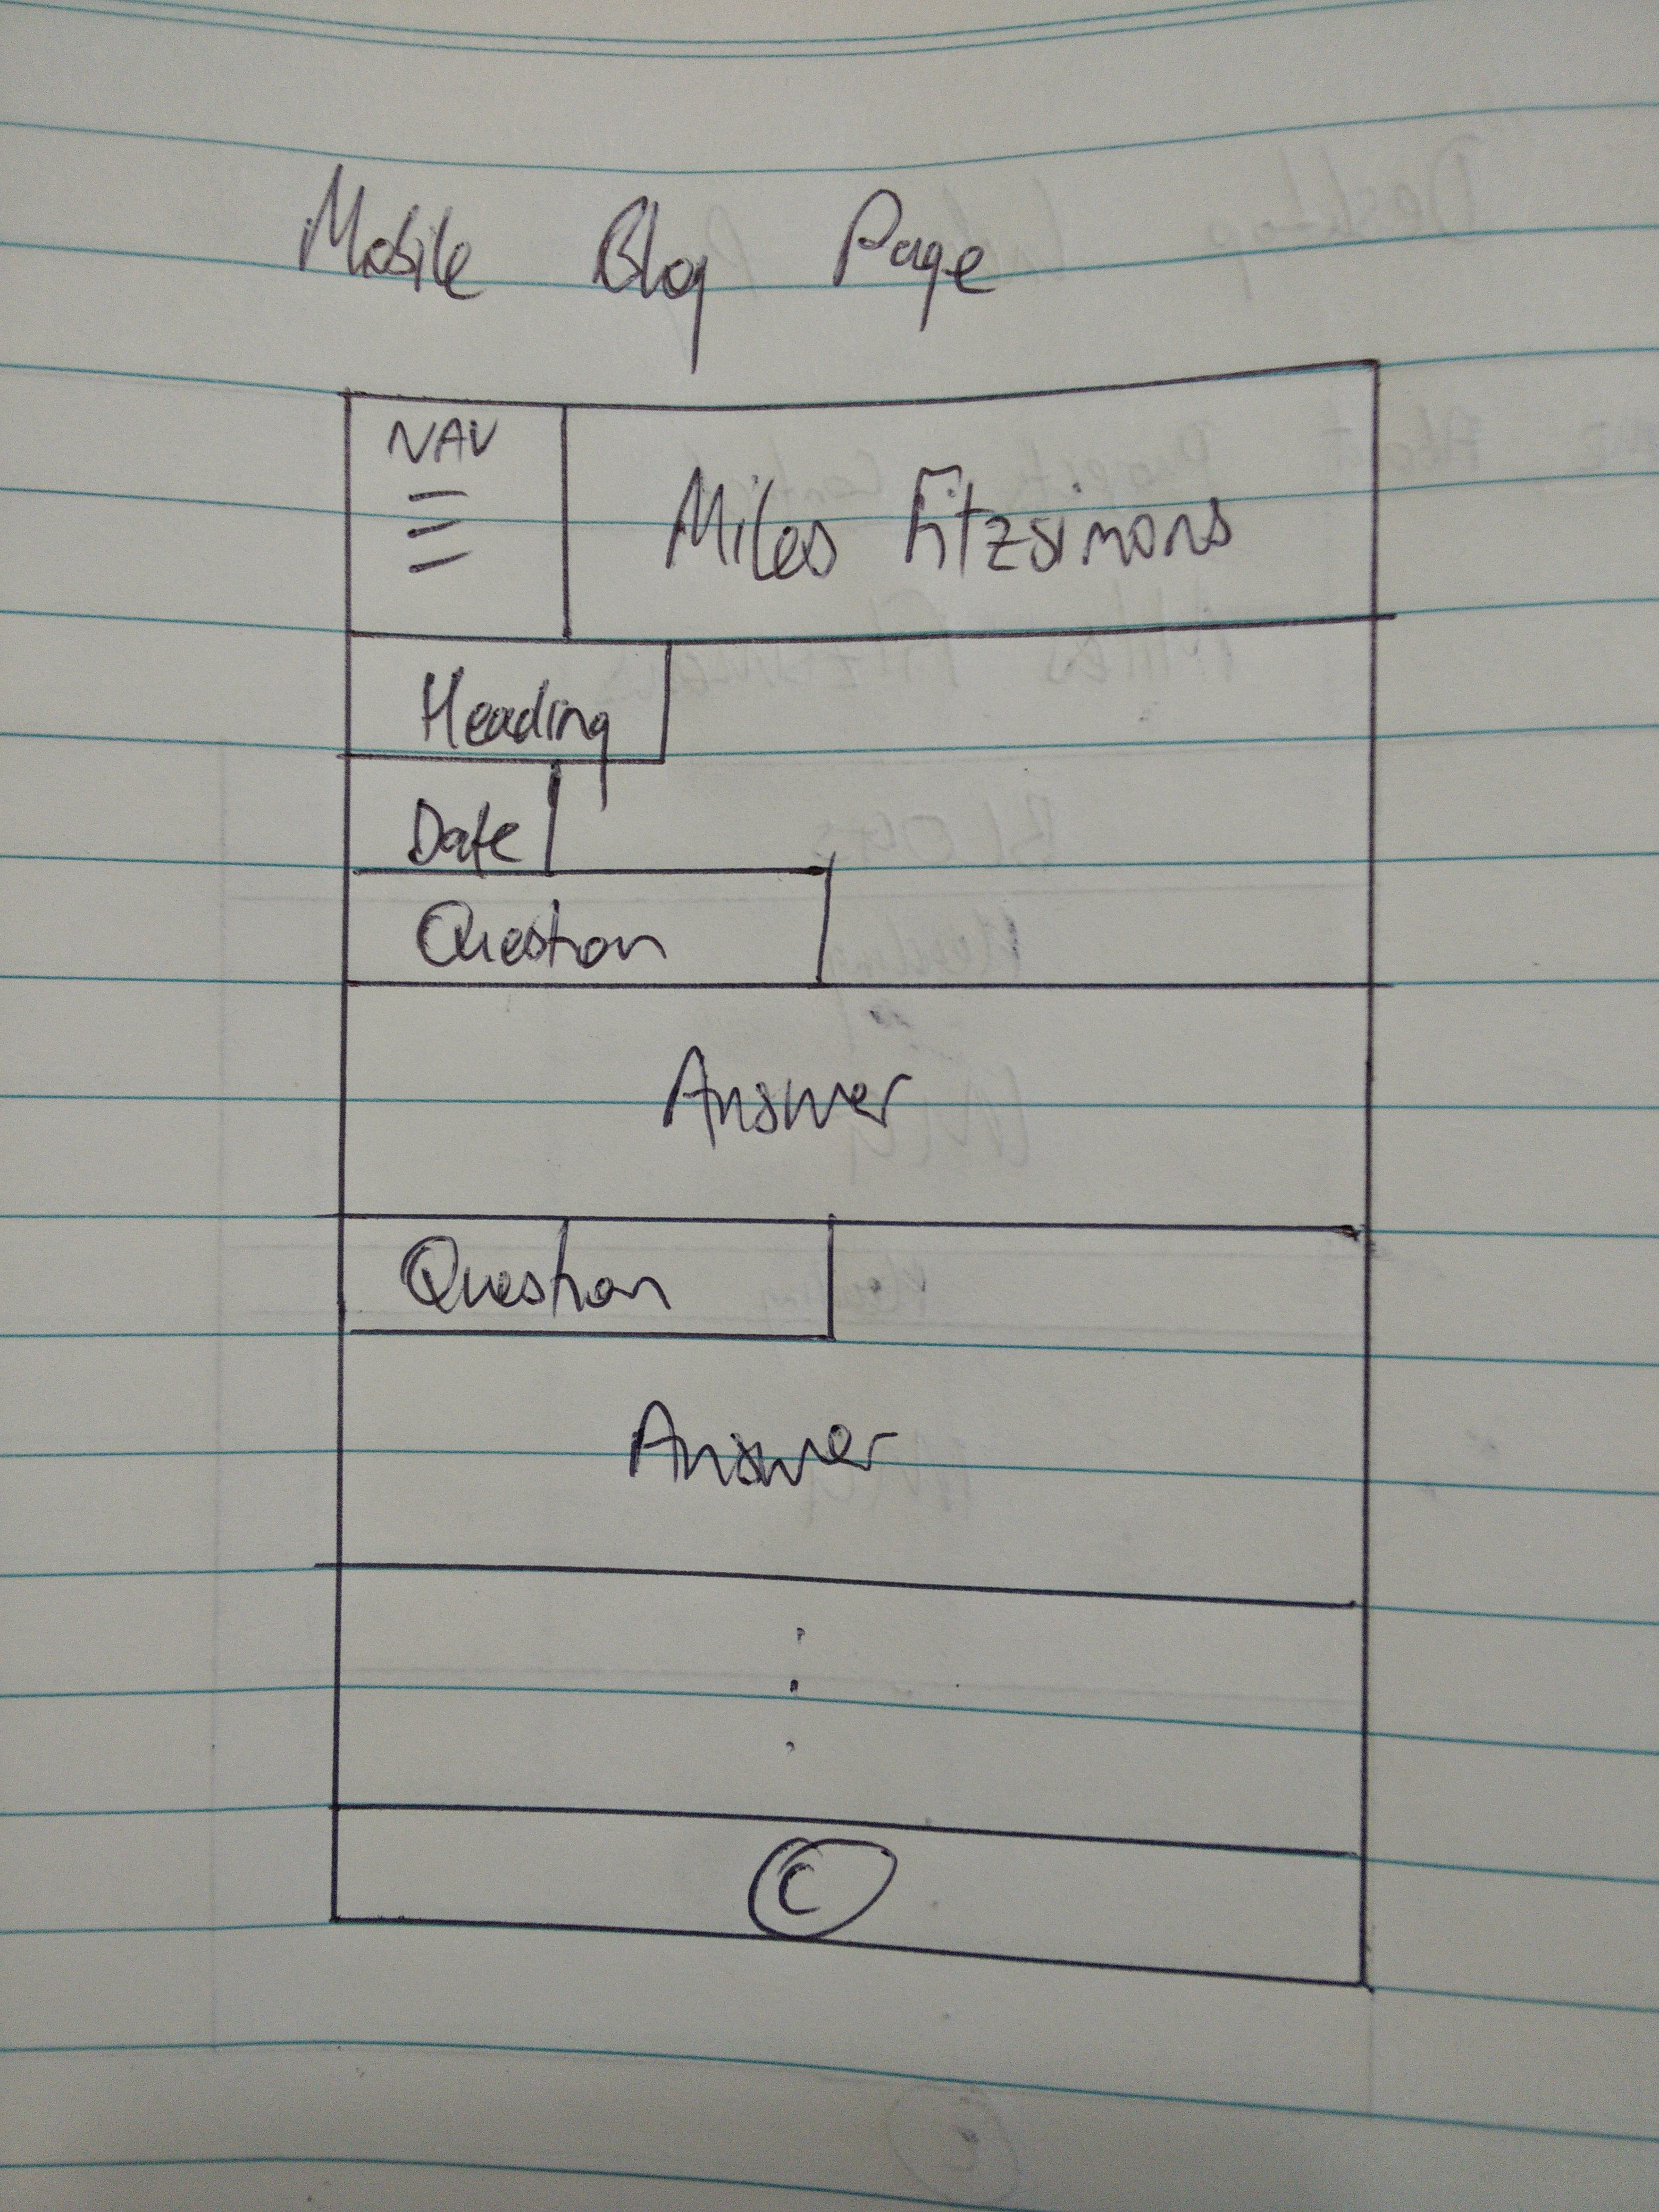 Mobile Blog Page
NAV
Miles Fitzsimons
Heading
Date
Question
Answer
Question
Answer
©